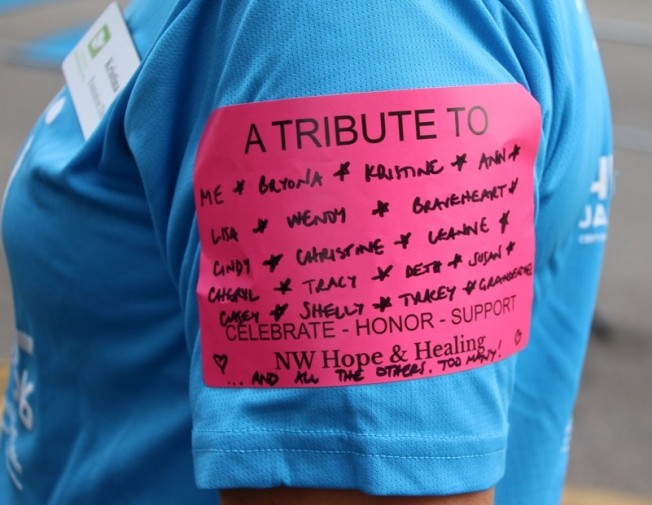 Kristina
A TRIBUTE TO
ME * BRYONA * KRISTINE * ANN *
LISA * WENDY * BRAVEHEART *
CINDY * CHRISTINE * LEANNE *
CHERYL * TRACY * BETH * SUSAN *
CASEY * SHELLY * TRICEY *
CELEBRATE - HONOR - SUPPORT
NW Hope & Healing
♡ ... AND ALL THE OTHERS. TOO MANY! ♡